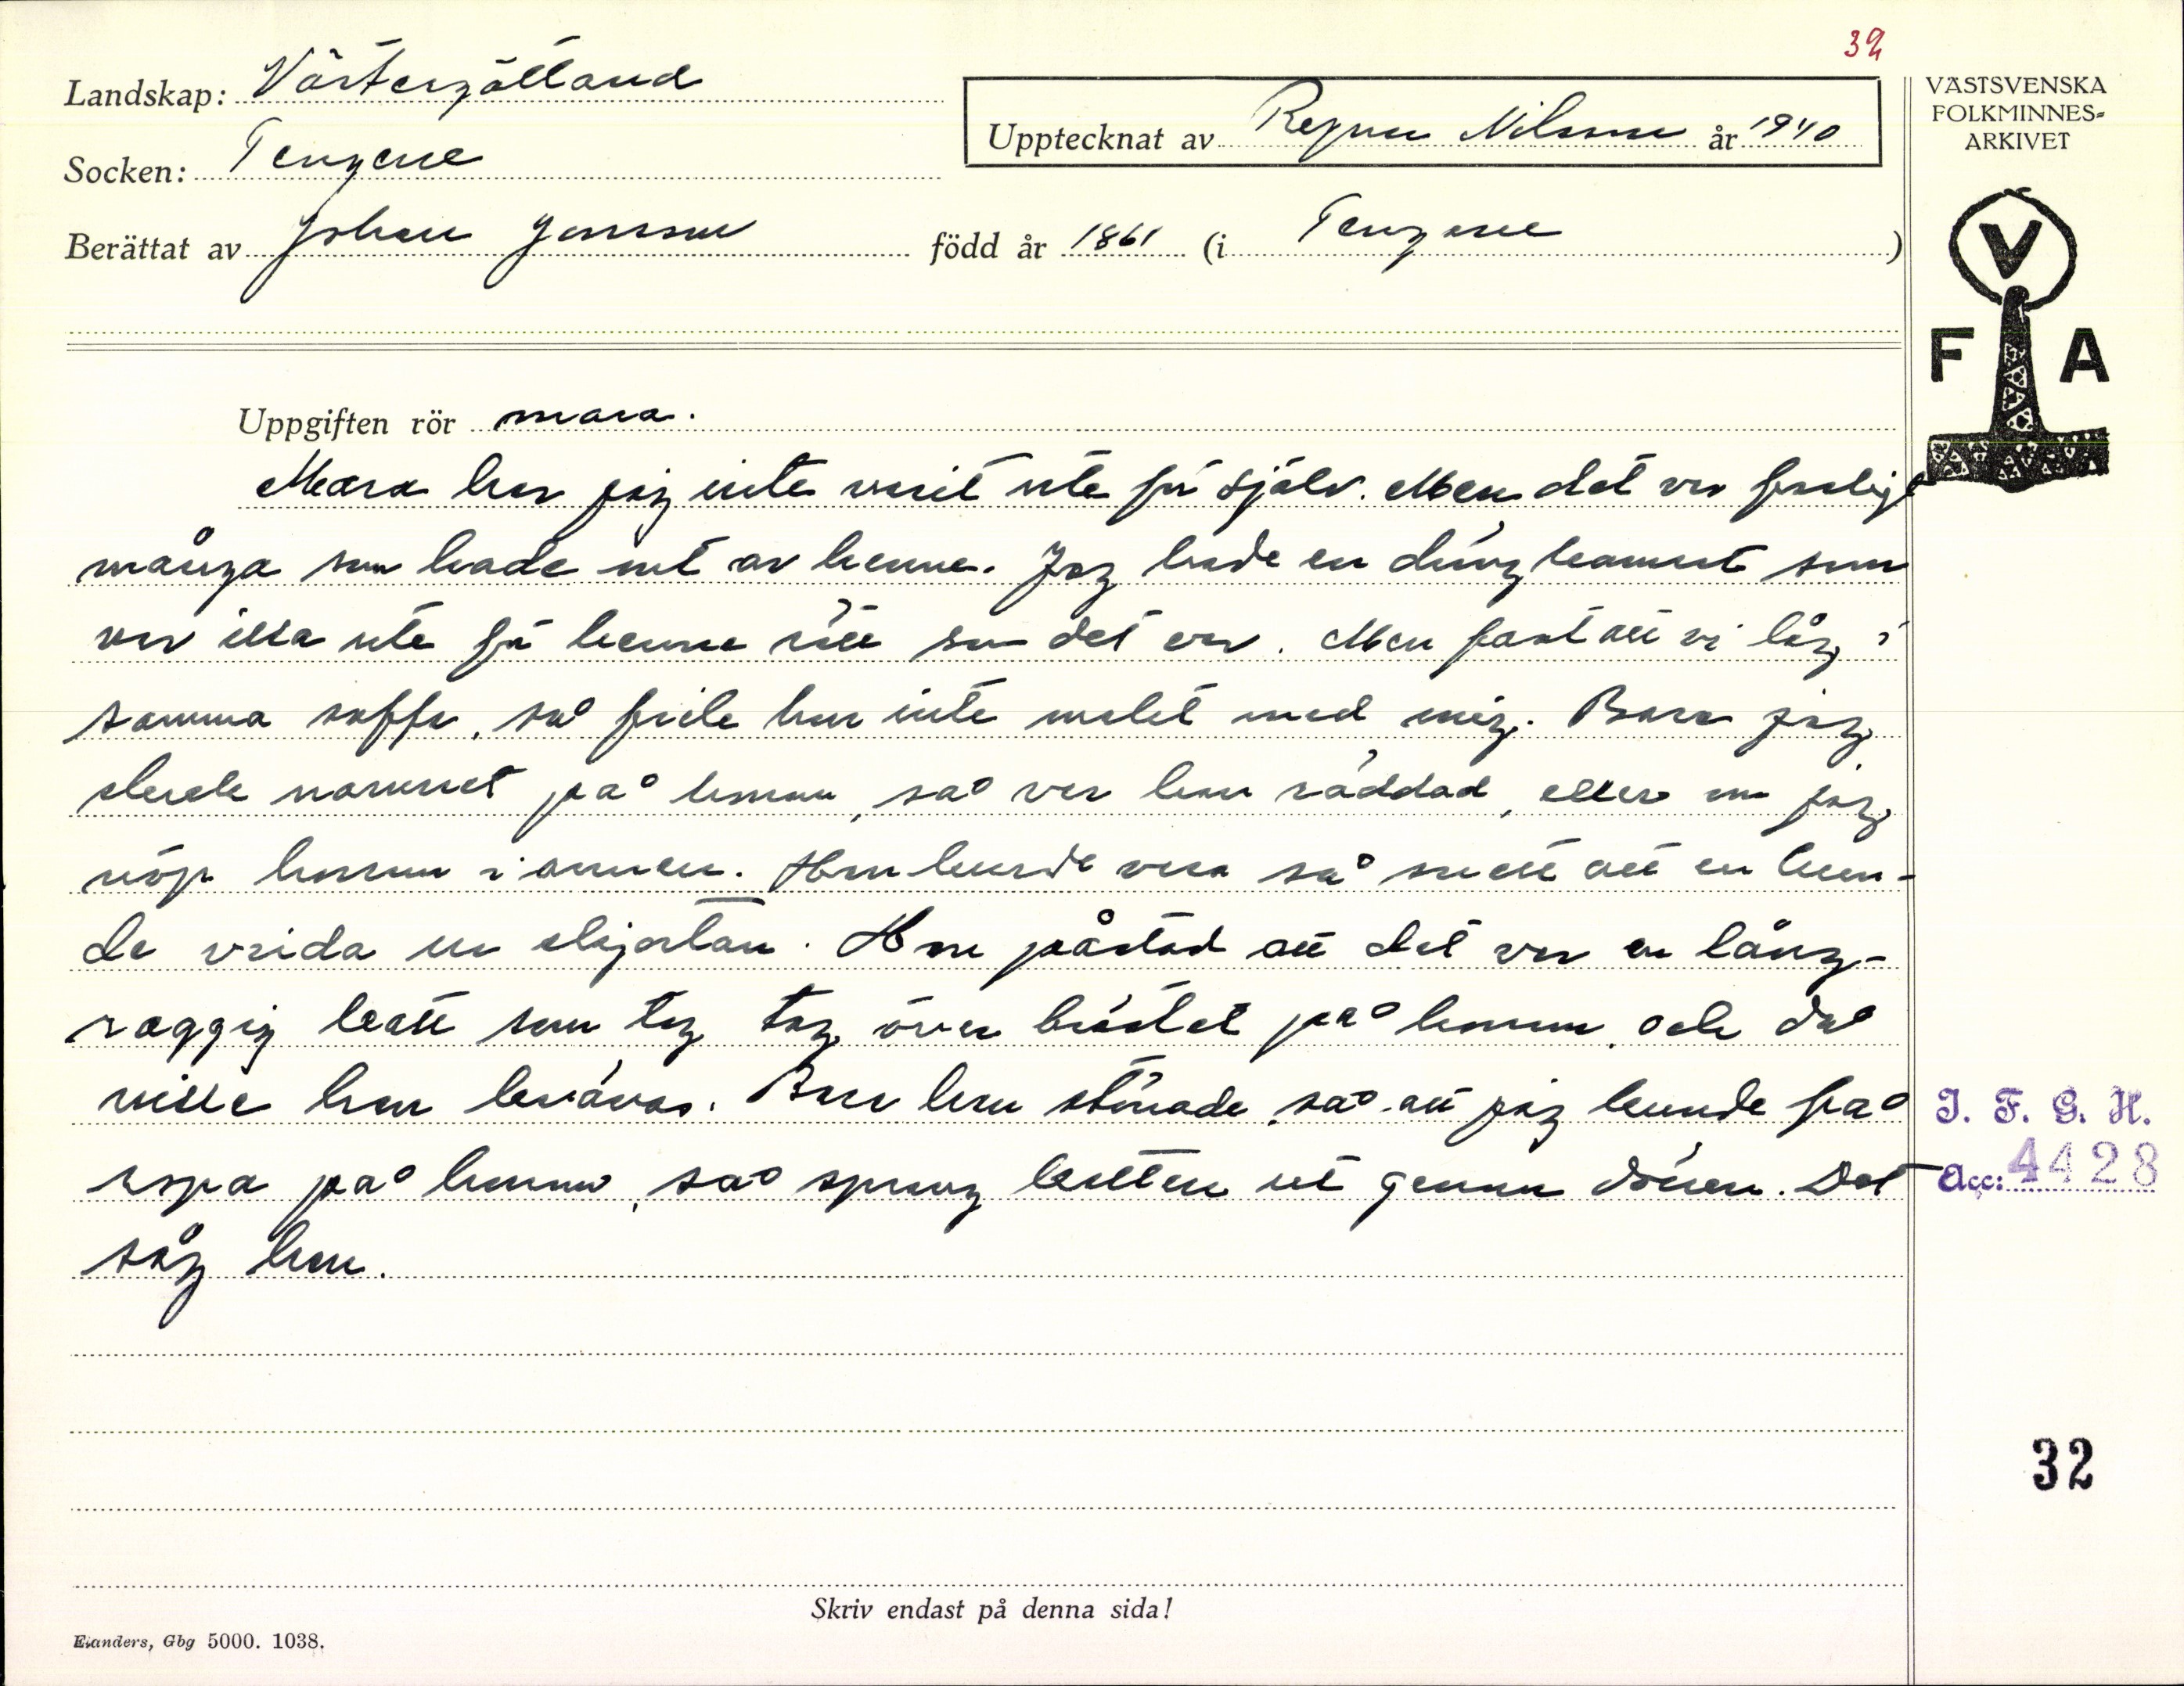 32
Landskap: Västergötland
Upptecknat av Ragnar Nilsson år 1940
Socken: Tengene
Berättat av Johan Jonsson född år 1861 (i Tengene)
VÄSTSVENSKA
FOLKMINNES=
ARKIVET
V
F A
Uppgiften rör mara.
Mara har jag inte varit ute för själv. Men det var farligt
många som hade ont av henne. Jag hade en drängkamrat som
var illa ute för henne rätt som det var. Men fast att vi låg i
samma soffa, så fick han inte malet med mig. Bara jag
skrek namnet på honom, så var han räddad, eller om jag
nöp honom i armen. Han kunde vara så svett att en kun-
de vrida ur skjortan. Han påstod att det var en lång-
raggig katt som tog tag över bröstet på honom, och då
ville han kvävas. Bara han stönade, så att jag kunde få
ropa på honom, så sprang katten ut genom dörren. Det
såg han.
I. F. G. H.
Acc: 4428
32
Skriv endast på denna sida!
Elanders, Gbg 5000. 1038.